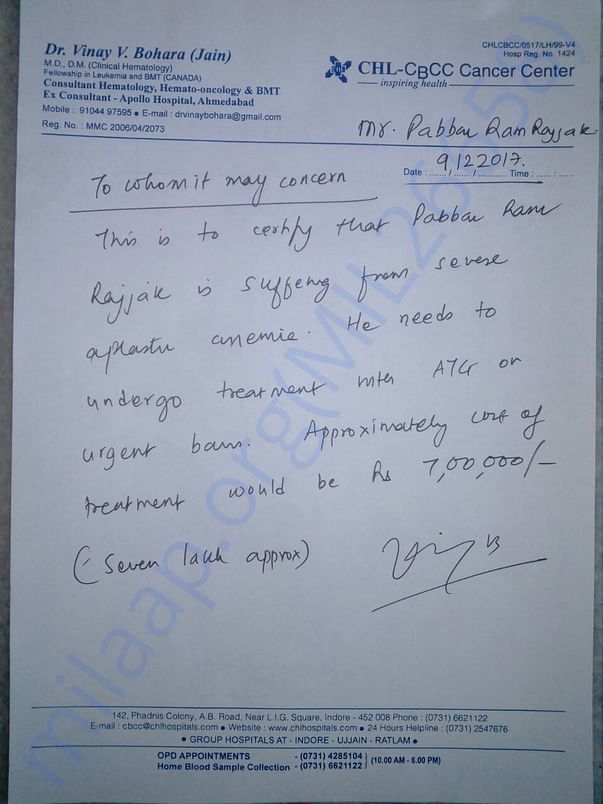 CHLCBCC/0517/LH/99-V4
Hosp Reg. No. 1424
Dr. Vinay V. Bohara (Jain)
M.D., D.M. (Clinical Hematology)
Fellowship in Leukemia and BMT (CANADA)
Consultant Hematology, Hemato-oncology & BMT
Ex Consultant - Apollo Hospital, Ahmedabad
Mobile : 91044 97595 • E-mail : drvinaybohara@gmail.com
Reg. No. : MMC 2006/04/2073
CHL-CBCC Cancer Center
inspiring health
Mr. Pabbar Ram Rajjak
Date : 9/12/2017. Time :
To whom it may concern
This is to certify that Pabbar Ram
Rajjak is suffering from severe
aplastic anemia. He needs to
undergo treatment with ATG on
urgent basis. Approximately cost of
treatment would be Rs 7,00,000/-
(Seven lakh approx)
milaap.org(MIL
142, Phadnis Colony, A.B. Road, Near L.I.G. Square, Indore - 452 008 Phone : (0731) 6621122
E-mail : cbcc@chlhospitals.com • Website : www.chlhospitals.com • 24 Hours Helpline : (0731) 2547676
• GROUP HOSPITALS AT - INDORE - UJJAIN - RATLAM •
OPD APPOINTMENTS - (0731) 4285104
Home Blood Sample Collection - (0731) 6621122 (10.00 AM - 6.00 PM)